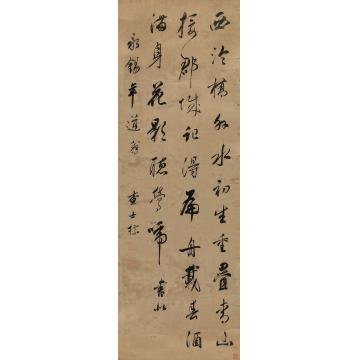 西泠橋外水初生重疊青山
接郡城記得扁舟載春酒
滿身花影聽鶯啼 書似
永錫年道翁 查士標